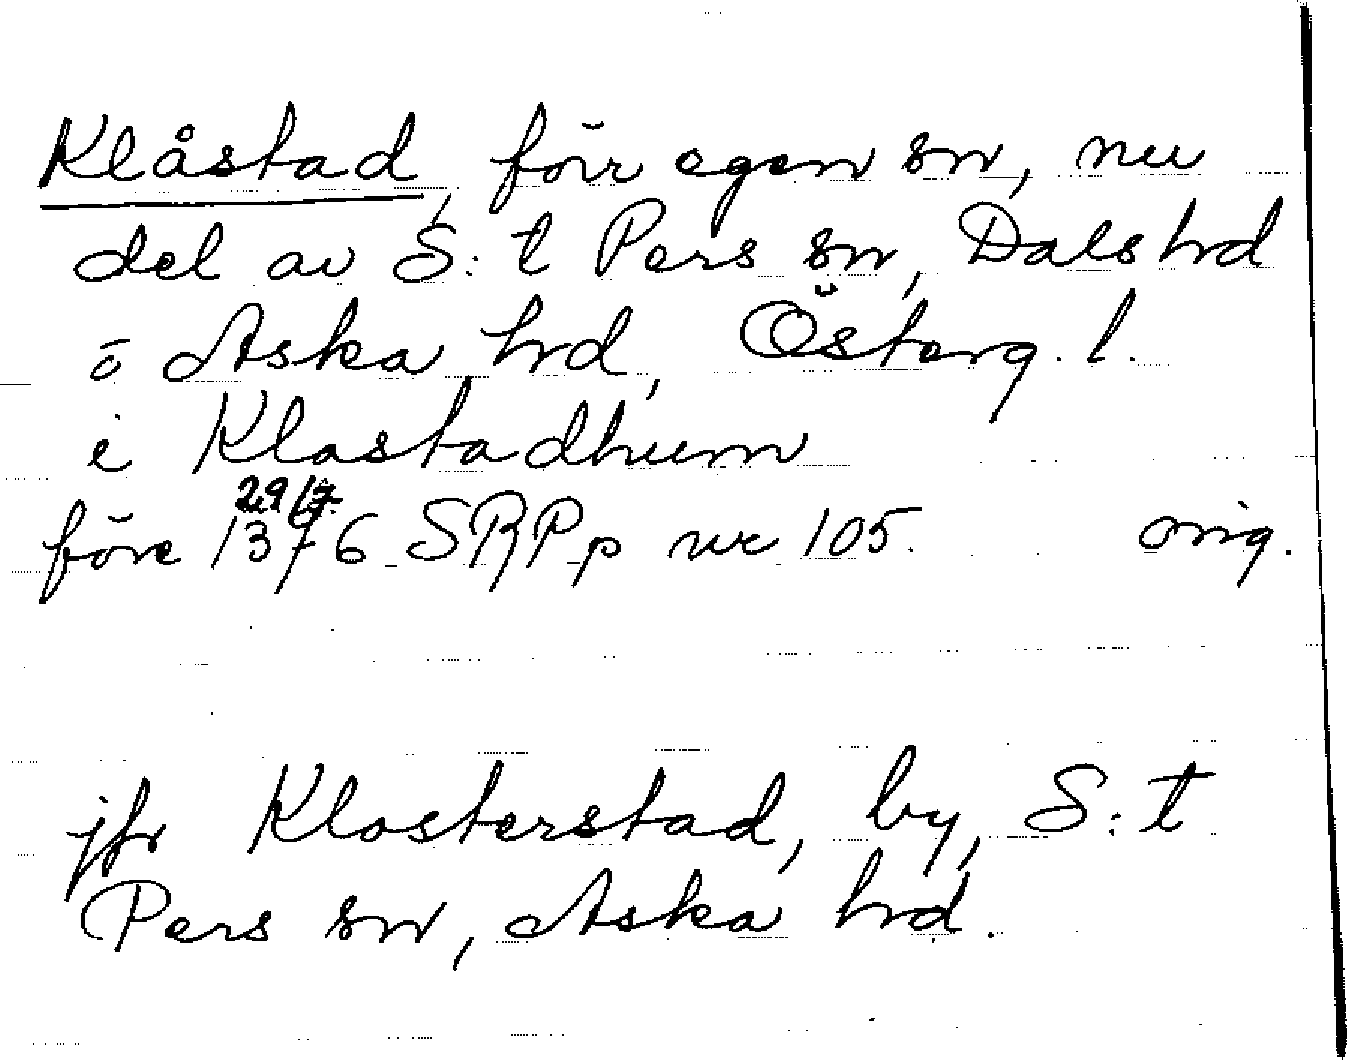 Klåstad, förr egen sn, nu
del av S:t Pers sn, Dals hd
o Aska hd, Österg. l.
i Klastadhum
29/7
före 1376 SRPp nr 105. orig.
jfr Klosterstad, by, S:t
Pers sn, Aska hd.